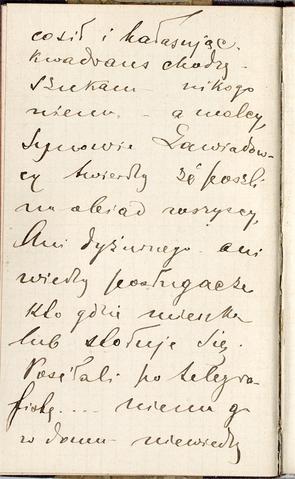 cosił i hałasując.
Kwadrans chodzę -
szukam - nikogo
niema. - a malcy,
synowie Zawiadow-
cy twierdzą że poszli
na obiad wszyscy,
Ani dyżurnego - ani
wiedzą posługacze
kto gdzie mieszka
lub stołuje się.
Posyłali po telegra-
fistę.... niema go
w domu - niewiedzą